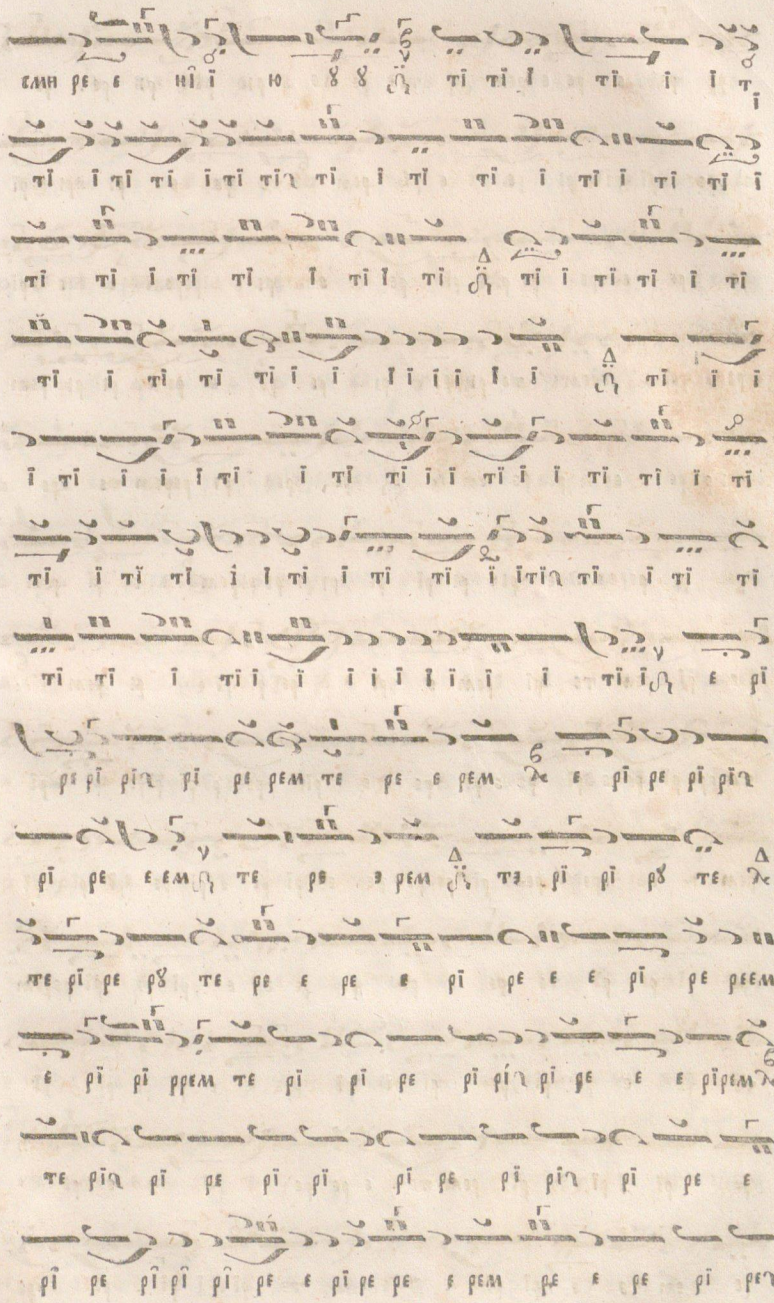 емн ре е нї ї ю ꙋ ꙋ тї тї ї тї ї ї т ї
тї ї тї тї ї тї тї тї ї тї тї ї тї ї тї тї ї
тї тї ї тї тї ї тї ї тї тї ї тї тї ї тї
тї ї тї тї тї ї ї ї ї ї ї ї ї тї ї ї
ї тї ї ї ї тї ї тї тї ї ї тї ї ї тї тї ї тї
тї ї тї тї ї ї тї ї тї тї ї ї тї тї ї тї тї
тї тї ї тї ї ї ї ї ї ї ї ї ї тї ї е рї
ре рї рї рї ре рем те ре е рем е рї ре рї рї
рї ре е ем те ре э рем тэ рї рї рꙋ те
те рї ре рꙋ те ре е ре е рї ре е е рї ре реем
е рї рї ррем те рї рї ре рї рї рї ре е е рї рем
те рї рї ре рї рї рї ре рї рї рї ре е
рї ре рї рї рї ре е рї ре ре е рем ре е ре рї ре